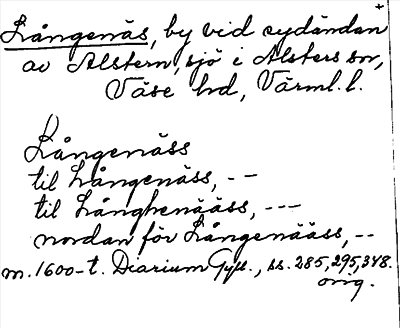 Långenäs, by vid sydändan
av Alstern, sjö i Alsters sn,
Väse hd, Värml. l.
Långenäss
til Långenäss, --
til Långhenääss, ---
nordan för Långenääss, --
m. 1600-t. Diarium Gyll., ss. 285, 295, 348.
orig.